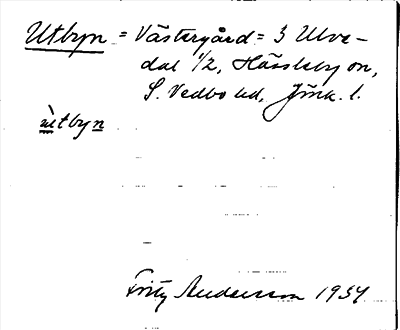 Utbyn = Västergård = 3 Ulve-
dal 1/2, Hässleby sn,
S. Vedbo hd, Jönk. l.
ùtbyn
Fritz Andersson 1934